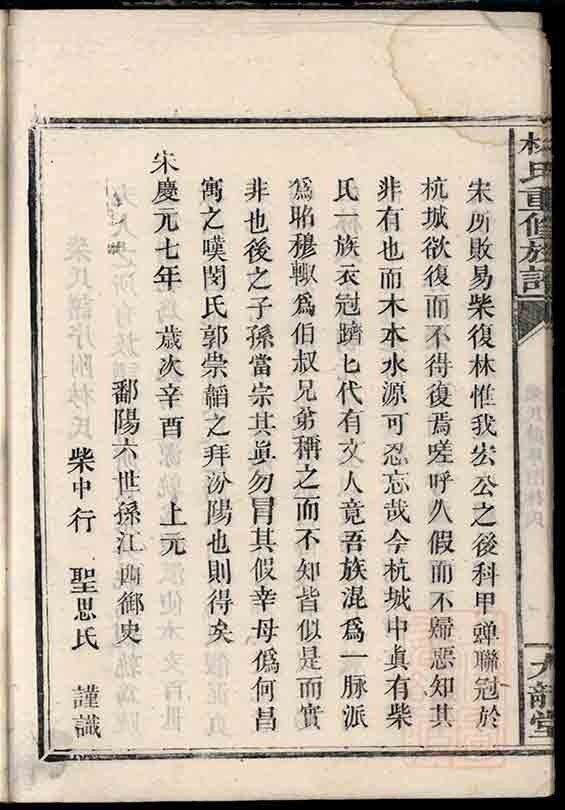 林氏重修族譜
九龍堂
宋所敗易柴復林惟我宏公之後科甲蟬聯冠於
杭城欲復而不得復焉嗟呼久假而不歸惡知其
非有也而木本水源可忍忘哉今杭城中眞有柴
氏一族衣冠躋匕代有文人竟吾族混爲一脈派
爲昭穆輙爲伯叔兄弟稱之而不知皆似是而實
非也後之子孫當宗其眞勿冒其假幸毋僞何昌
寓之嘆閔氏郭崇韜之拜汾陽也則得矣
宋慶元七年 歲次辛酉 上元
鄱陽六世孫江西御史
柴中行 聖思氏 謹識